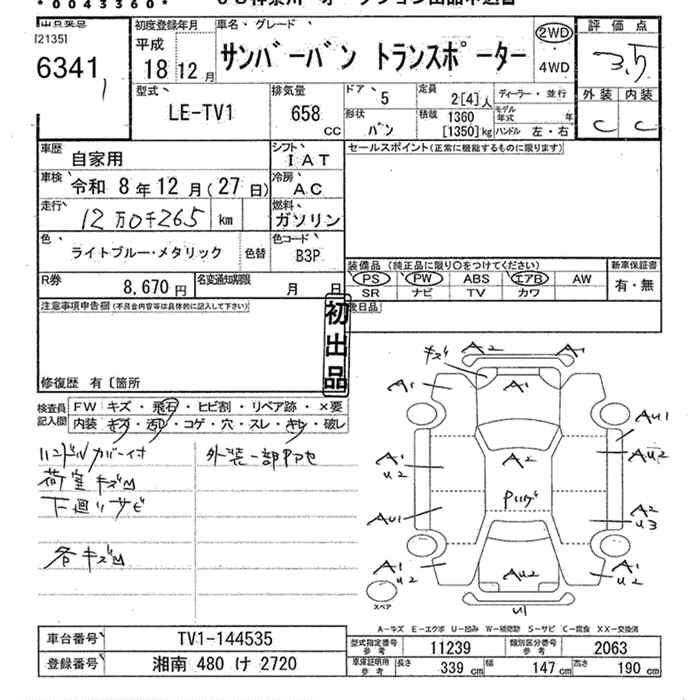 *0043360*
[2135]
6341
初度登録年月
平成
18 12月
車名・グレード
サンバーバン トランスポーター
2WD
4WD
評価点
3.5
外装 内装
C C
型式
LE-TV1
排気量
658
CC
ドア 5
形状 バン
定員 2[4]人
積載 1360
[1350]kg
ディーラー・並行
モデル年式 年
ハンドル 左・右
車歴 自家用
シフト IAT
セールスポイント(正常に機能するものに限ります)
車検 令和8年12月(27日)
冷房 AC
走行 12万0千265 km
燃料 ガソリン
色 ライトブルー・メタリック 色替
色コード B3P
装備品(純正品に限り○をつけてください)
新車保証書
PS PW ABS エアB AW
有・無
SR ナビ TV カワ
R券 8,670円
名変通知期限 月 日
注意事項申告欄(不具合内容等は具体的に記入して下さい)
初出品
後日品
修復歴 有〔箇所
検査員記入欄
FW キズ・飛石・ヒビ割・リペア跡・×要
内装 キズ・汚れ・コゲ・穴・スレ・キレ・破レ
ハンドルカバー付
外装一部色アセ
荷室キズ凹
下廻りサビ
各キズ凹
キズ A2 A1
A1 A1
AU1
A1 A2 AU2
U2
Pいげ A2
AU1 U3
A1 AU2 A1
U2 U2
U1
スペア
A-キズ E-エクボ U-凹み W-補修跡 S-サビ C-腐食 XX-交換済
車台番号 TV1-144535
型式指定番号 参考 11239
類別区分番号 参考 2063
登録番号 湘南 480 け 2720
車庫証明用 参考 長さ 339 cm 幅 147 cm 高さ 190 cm